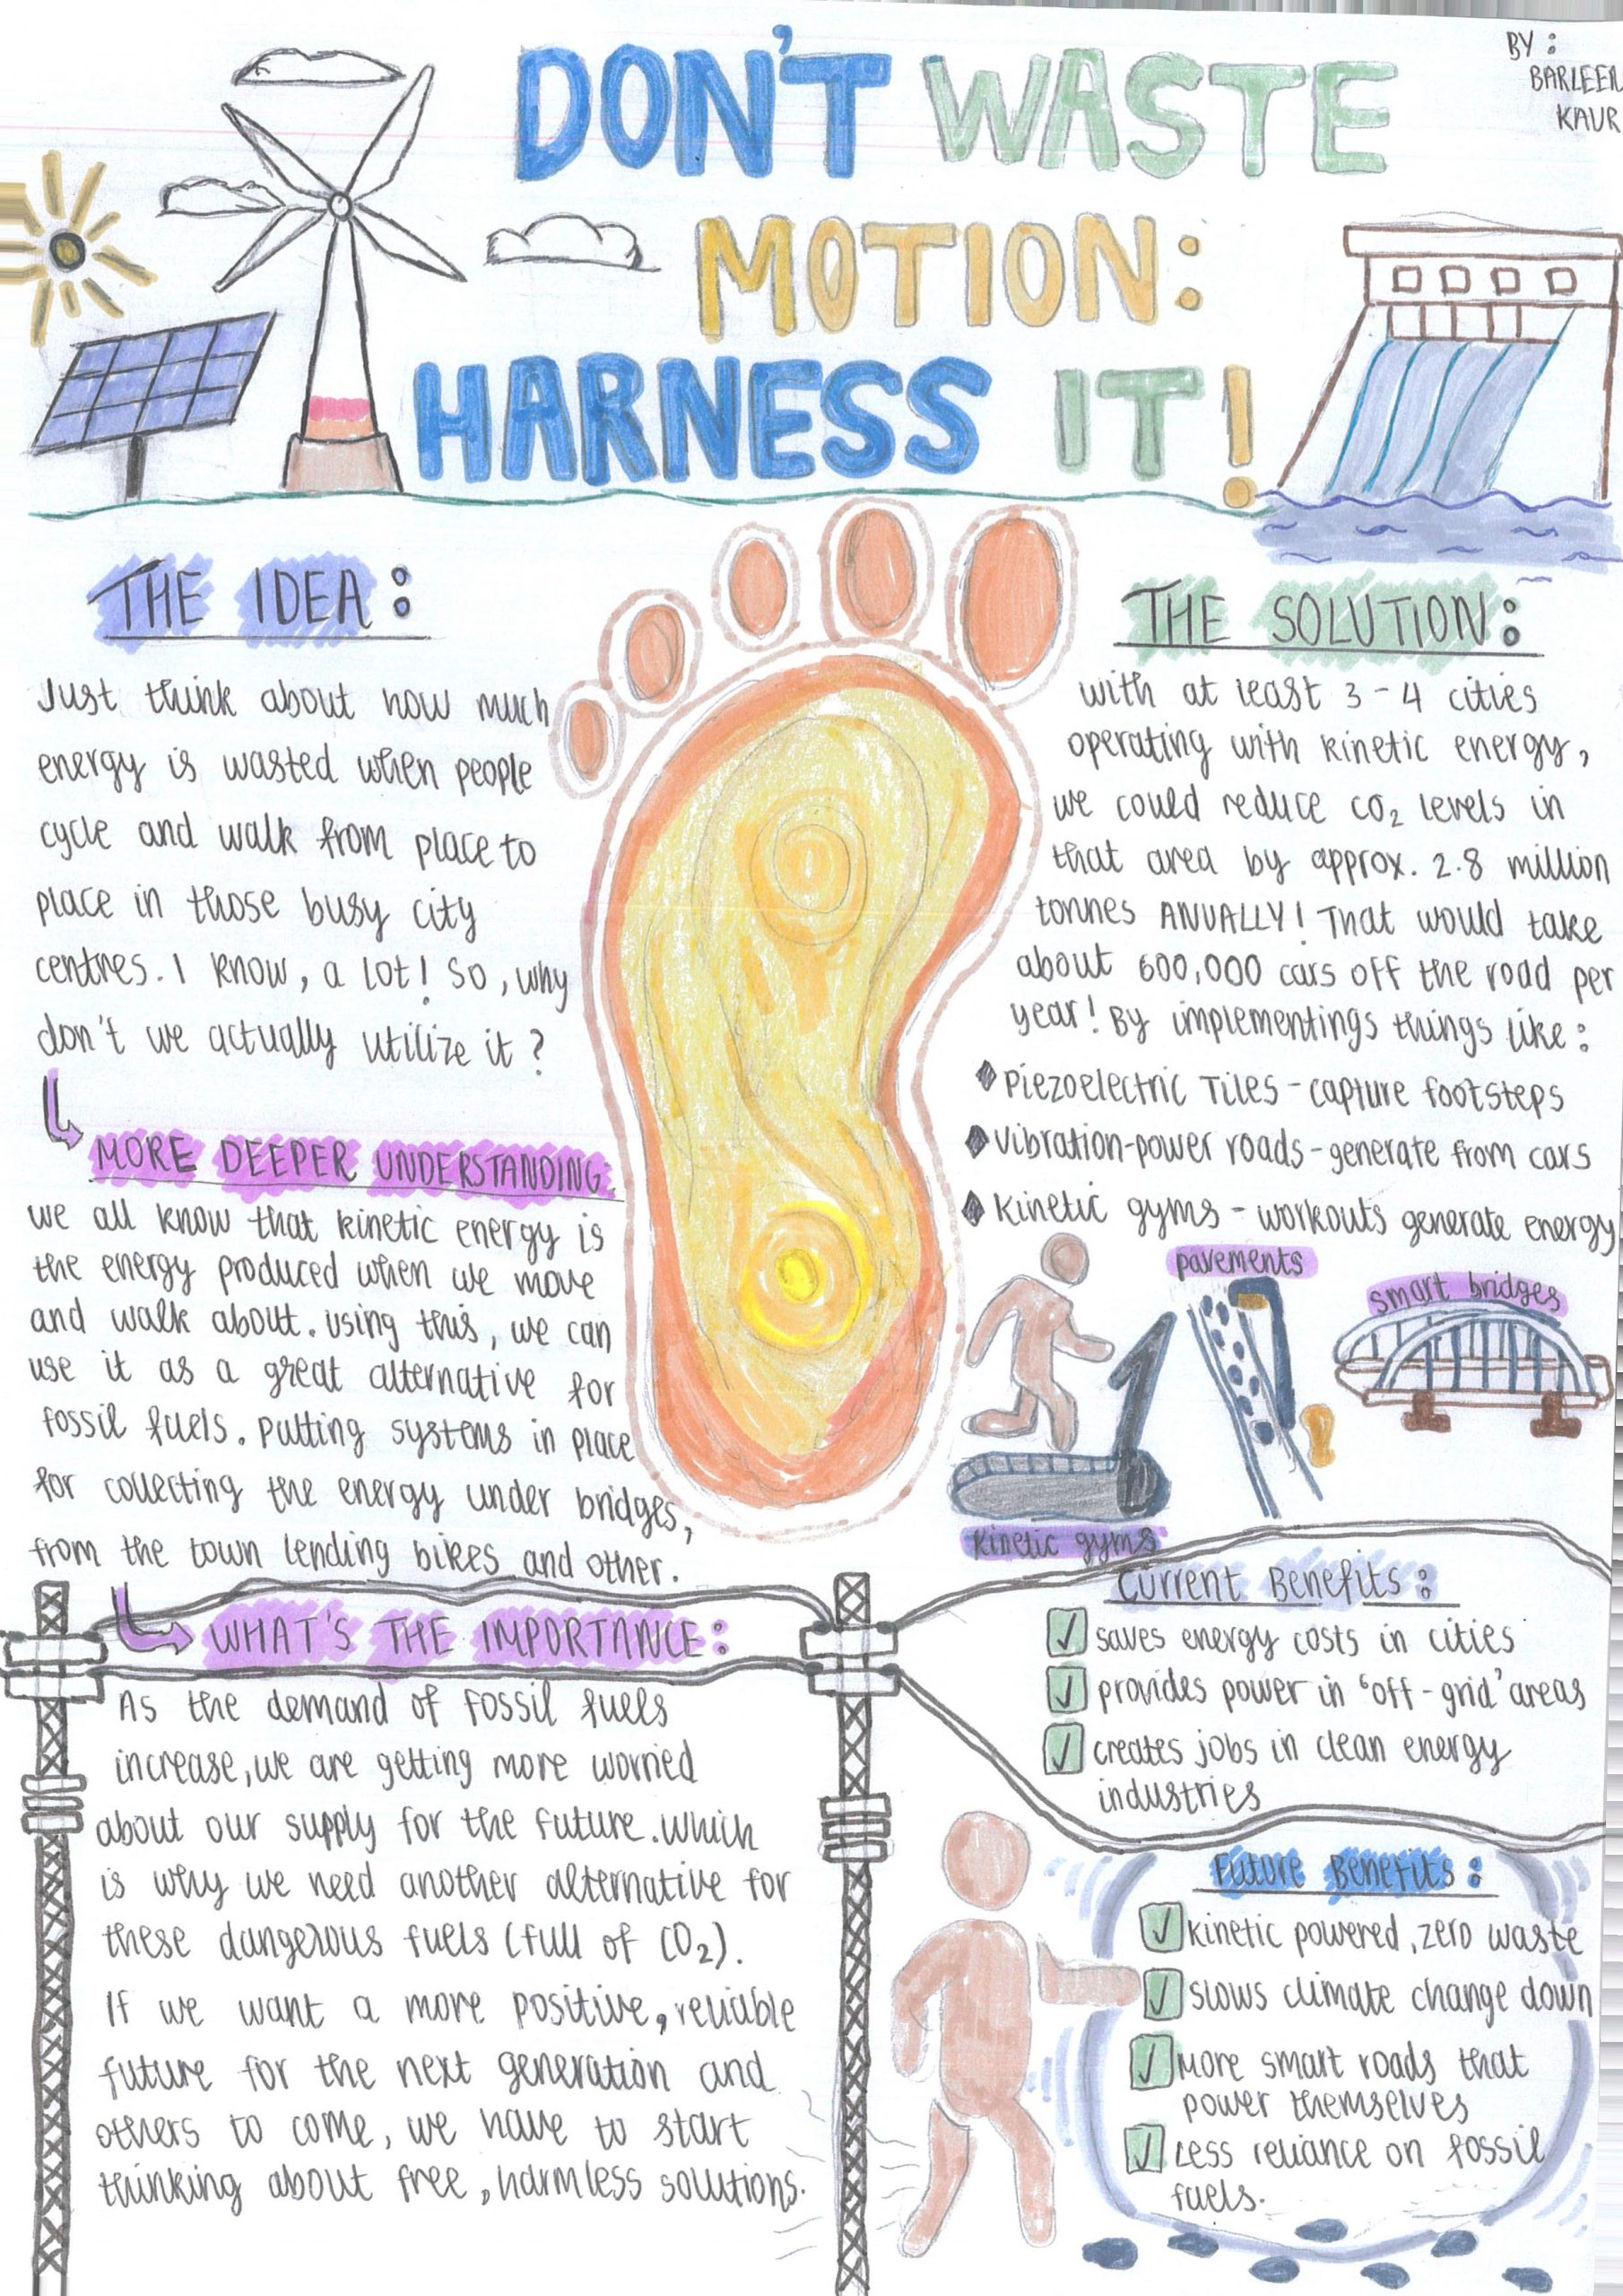 BY :
BARLEEN
KAUR
DON'T WASTE
MOTION:
HARNESS IT!
THE IDEA:
Just think about how much
energy is wasted when people
cycle and walk from place to
place in those busy city
centres. I know, a lot! So, why
don't we actually utilize it?
MORE DEEPER UNDERSTANDING:
we all know that kinetic energy is
the energy produced when we move
and walk about. using this, we can
use it as a great alternative for
fossil fuels. Putting systems in place
for collecting the energy under bridges,
from the town lending bikes and other.
WHAT'S THE IMPORTANCE:
As the demand of fossil fuels
increase, we are getting more worried
about our supply for the future. which
is why we need another alternative for
these dangerous fuels (full of CO₂).
If we want a more positive, reliable
future for the next generation and
others to come, we have to start
thinking about free, harmless solutions.
THE SOLUTION:
with at least 3-4 cities
operating with kinetic energy,
we could reduce CO₂ levels in
that area by approx. 2.8 million
tonnes ANUALLY! That would take
about 600,000 cars off the road per
year! By implementings things like:
◆ Piezoelectric Tiles - capture footsteps
◆ Vibration-power roads - generate from cars
◆ Kinetic gyms - workouts generate energy
pavements
smart bridges
Kinetic gyms
Current Benefits:
✓ saves energy costs in cities
✓ provides power in 'off-grid' areas
✓ creates jobs in clean energy
industries
Future Benefits:
✓ kinetic powered, zero waste
✓ slows climate change down
✓ More smart roads that
power themselves
✓ Less reliance on fossil
fuels.